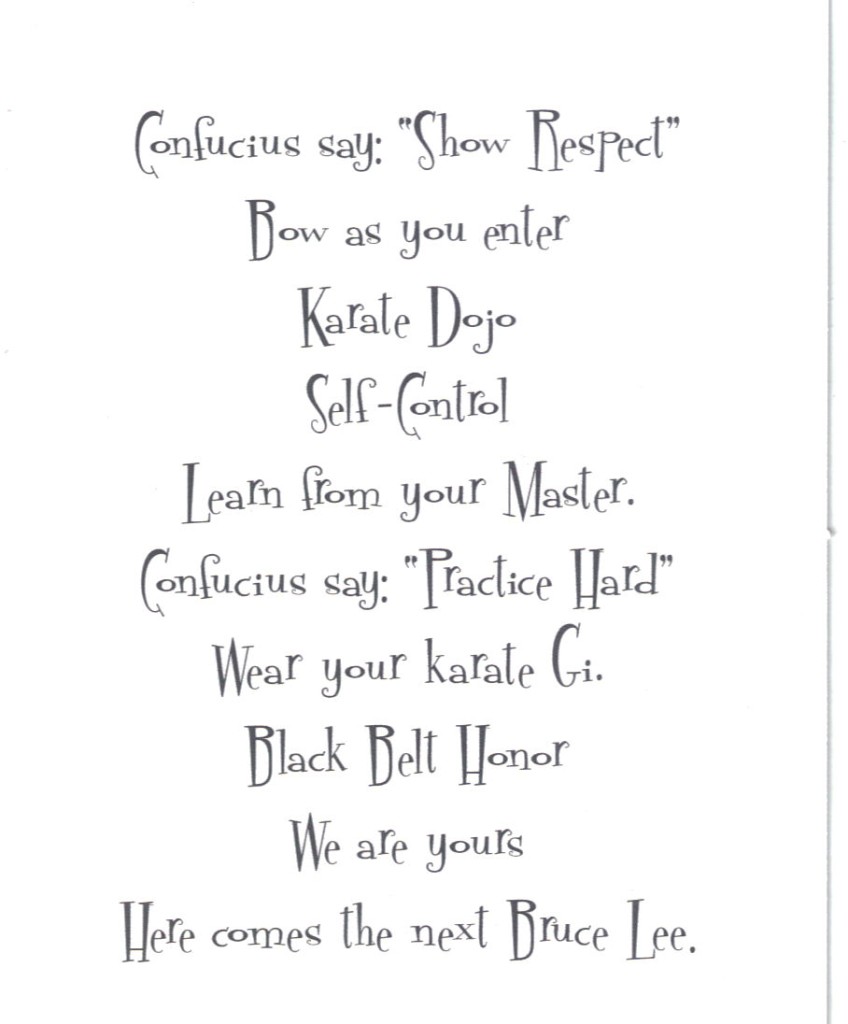 Confucius say: "Show Respect"
Bow as you enter
Karate Dojo
Self-Control
Learn from your Master.
Confucius say: "Practice Hard"
Wear your karate Gi.
Black Belt Honor
We are yours
Here comes the next Bruce Lee.